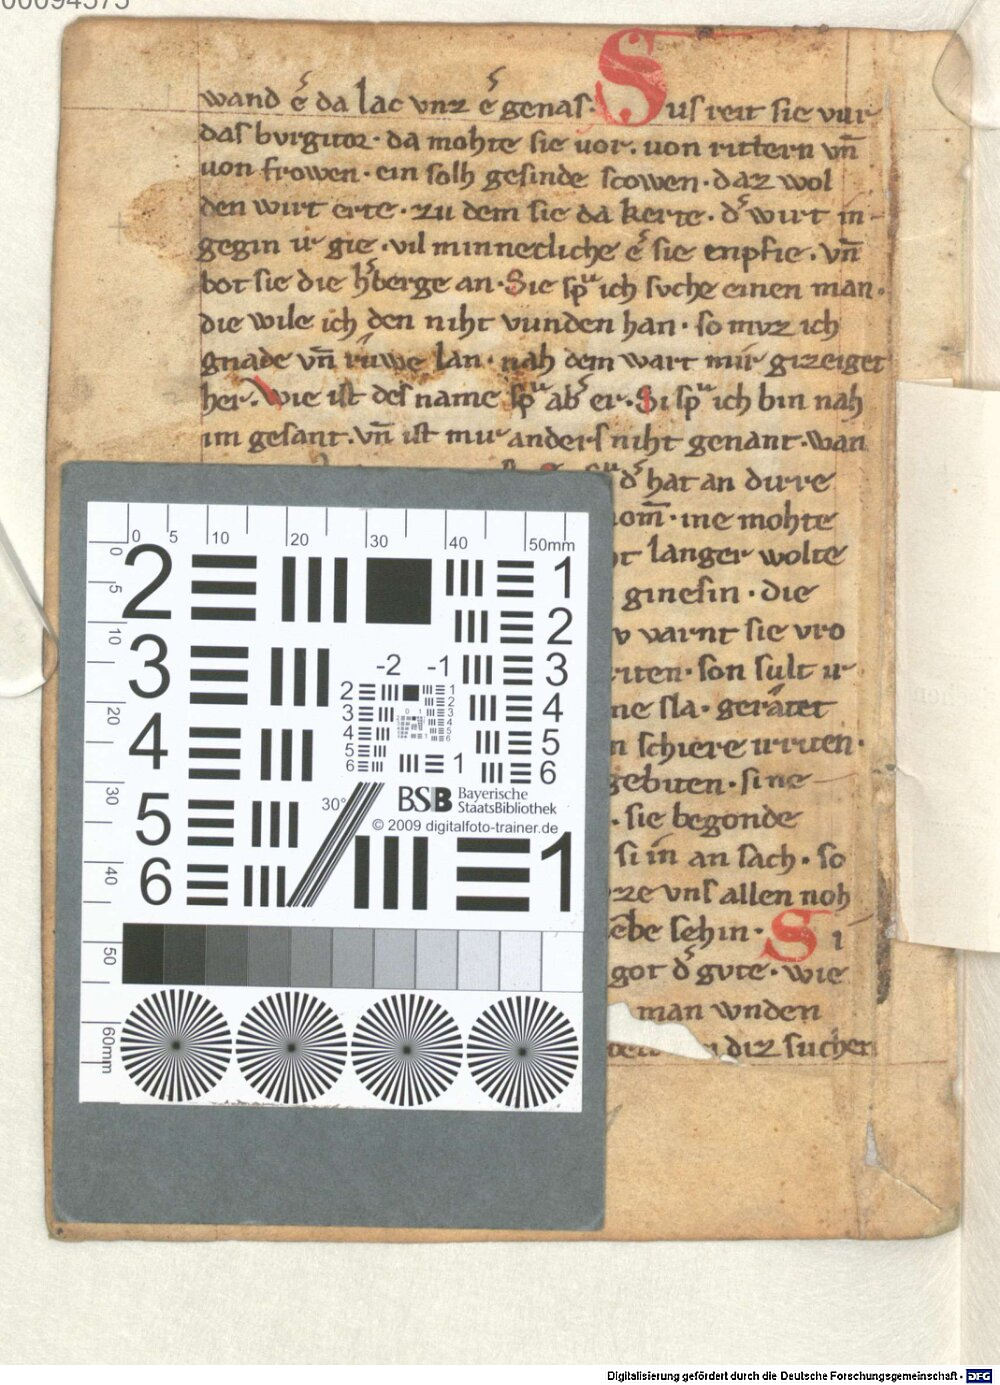 wand e͛ da lac vnz e͛ genas· Sus reit sie vur
das burgitor· da mohte sie uor. uon rittern vn̄
uon frowen· ein solh gesinde scowen· daz wol
den wirt erte· zu dem sie da kerte. d͛ wirt in-
gegin ir gie· vil minnecliche e͛ sie enpfie. vn̄
bot sie die h͛berge an· Sie spͧ ich suche einen man·
die wile ich den niht vunden han· so mvz ich
gnade vn̄ růwe lan· nah dem wart mir gizeiget
her· Wie ist des name spͧ ab͛ er· Si spͧ ich bin nah
im gesant· vn̄ ist mir anders niht genant· wan
d͛ hat an dirre
om̄· ine mohte
langer wolte
ginesin· die
warnt sie vro
riten· son sult ir
ne sla· gerátet
n schiere irriten·
gebiten· sine
sie begonde
si in an sach· so
ze vns allen noh
ebe sehin· Si
got d͛ gvte· wie
man wnden
diz suchen
0 5 10 20 30 40 50mm
0 5 10 20 30 40 50 60mm
2 3 4 5 6
1 2 3 4 5 6
-2 -1
2 3 4 5 6
1
30°
BSB Bayerische
StaatsBibliothek
© 2009 digitalfoto-trainer.de
1
Digitalisierung gefördert durch die Deutsche Forschungsgemeinschaft - DFG